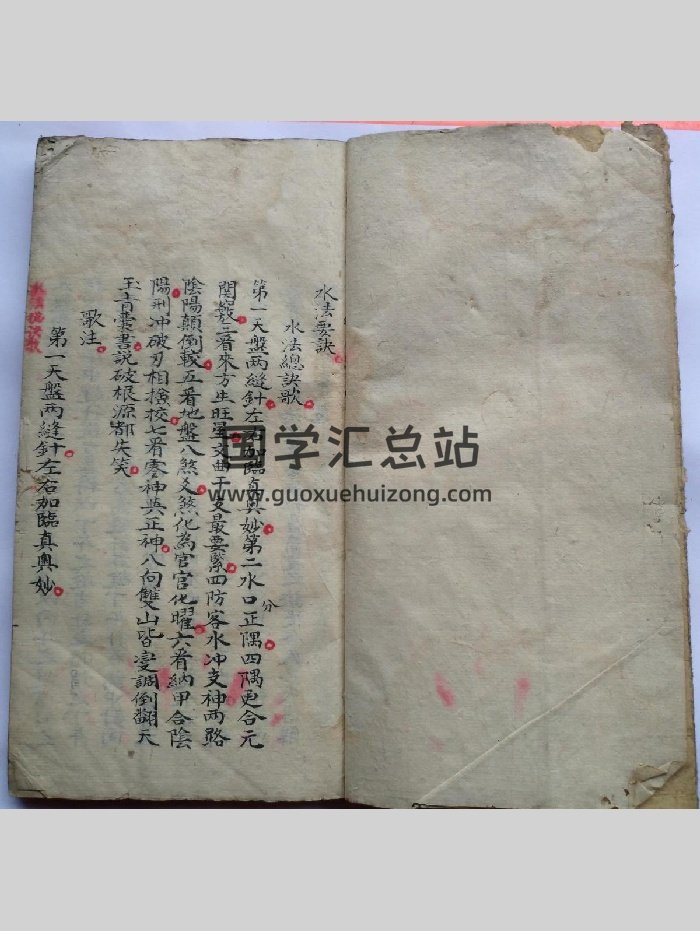 水法要訣
水法總訣歌
第一天盤兩縫針左右加臨真奧妙第二水口分正隅四隅更合元
關竅三看來方生旺墓交曲干支最要緊四防客水冲支神兩路
陰陽顛倒載五看地盤八煞爻煞化為官官化曜六看納甲合陰
陽刑冲破刃相捨校七看零神與正神八向雙山皆变調倒翻天
玉青囊書說破根源都失笑
歌注
第一天盤兩縫針左右加臨真奧妙
水法秘訣歌
国学汇总站
www.guoxuehuizong.com